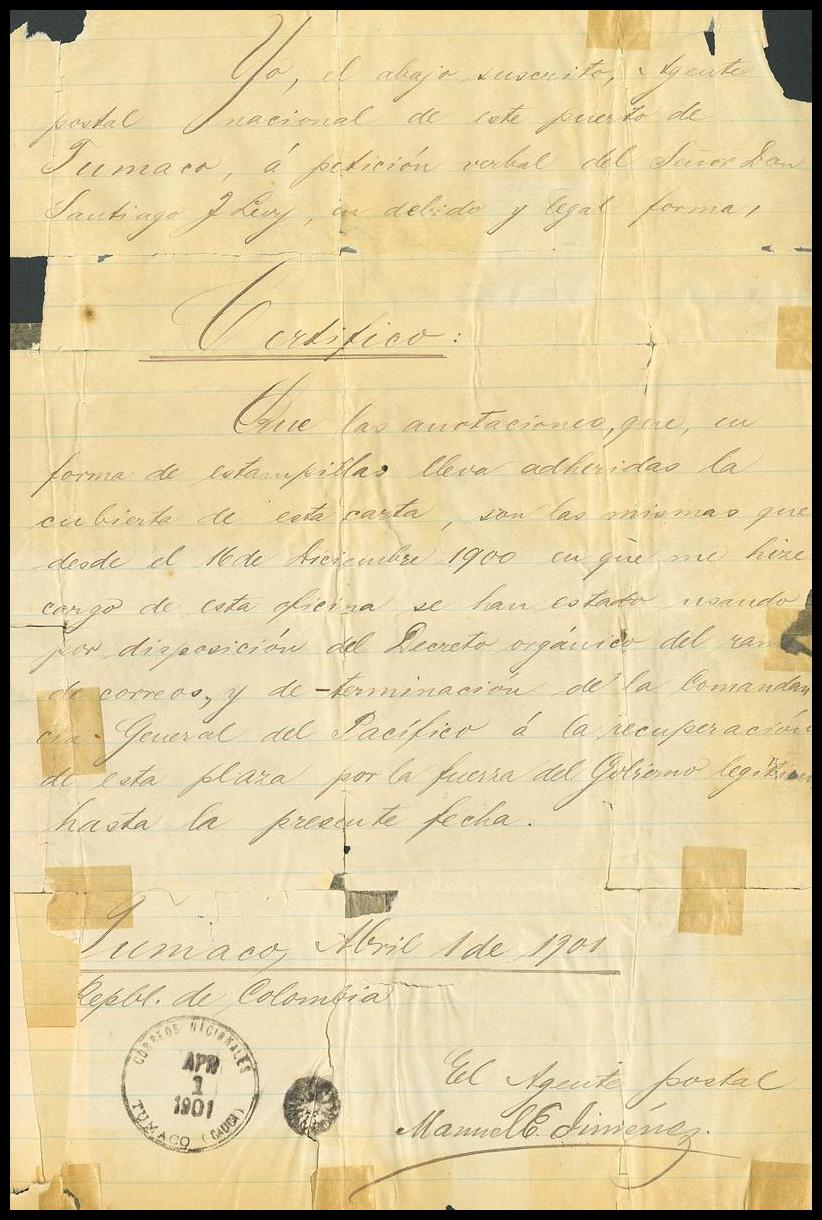 Yo, el abajo suscrito, Agente
postal nacional de este puerto de
Tumaco, á petición verbal del Señor Don
Santiago J Levy, en debido y legal forma,
Certifico:
Que las anotaciones, que, en
forma de estampillas lleva adheridas la
cubierta de esta carta, son las mismas que
desde el 16 de diciembre 1900 en que me hize
cargo de esta oficina se han estado usando
por disposición del Decreto orgánico del ram
de correos, y de-terminación de la Comandan
cia General del Pacífico á la recuperación
de esta plaza por la fuerza del Gobierno legítimo
hasta la presente fecha.
Tumaco, Abril 1 de 1901
Repbl. de Colombia
CORREOS NACIONALES
APR
1
1901
TUMACO (CAUCA)
El Agente postal
Manuel E. Jiménez.